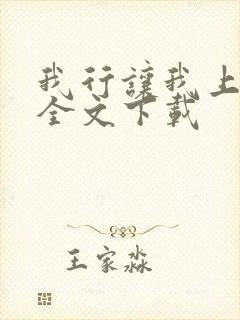 我行讓我上
全文下載
王家淼